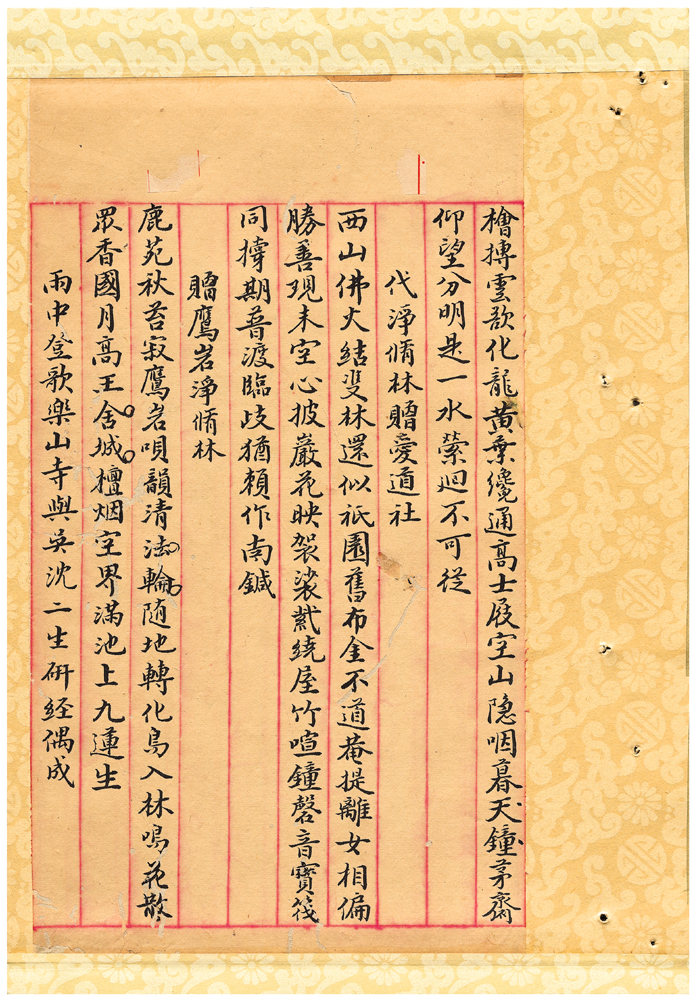 檜搏雲欲化龍黃葉纔通高士屐空山隐咽暮天鐘茅齋
仰望分明是一水縈迴不可從
代淨脩林贈愛道社
西山佛火結雙林還似祇園舊布金不道菴提離女相偏
勝善現未空心披巖花映袈裟紫繞屋竹喧鐘磬音寶筏
同撐期普渡臨歧猶賴作南鍼
贈鷹岩淨脩林
鹿苑秋苔寂鷹岩唄韻清法輪随地轉化鳥入林鳴花散
眾香國月高王舍城檀烟空界滿池上九蓮生
雨中登歌樂山寺與吳沈二生研經偶成